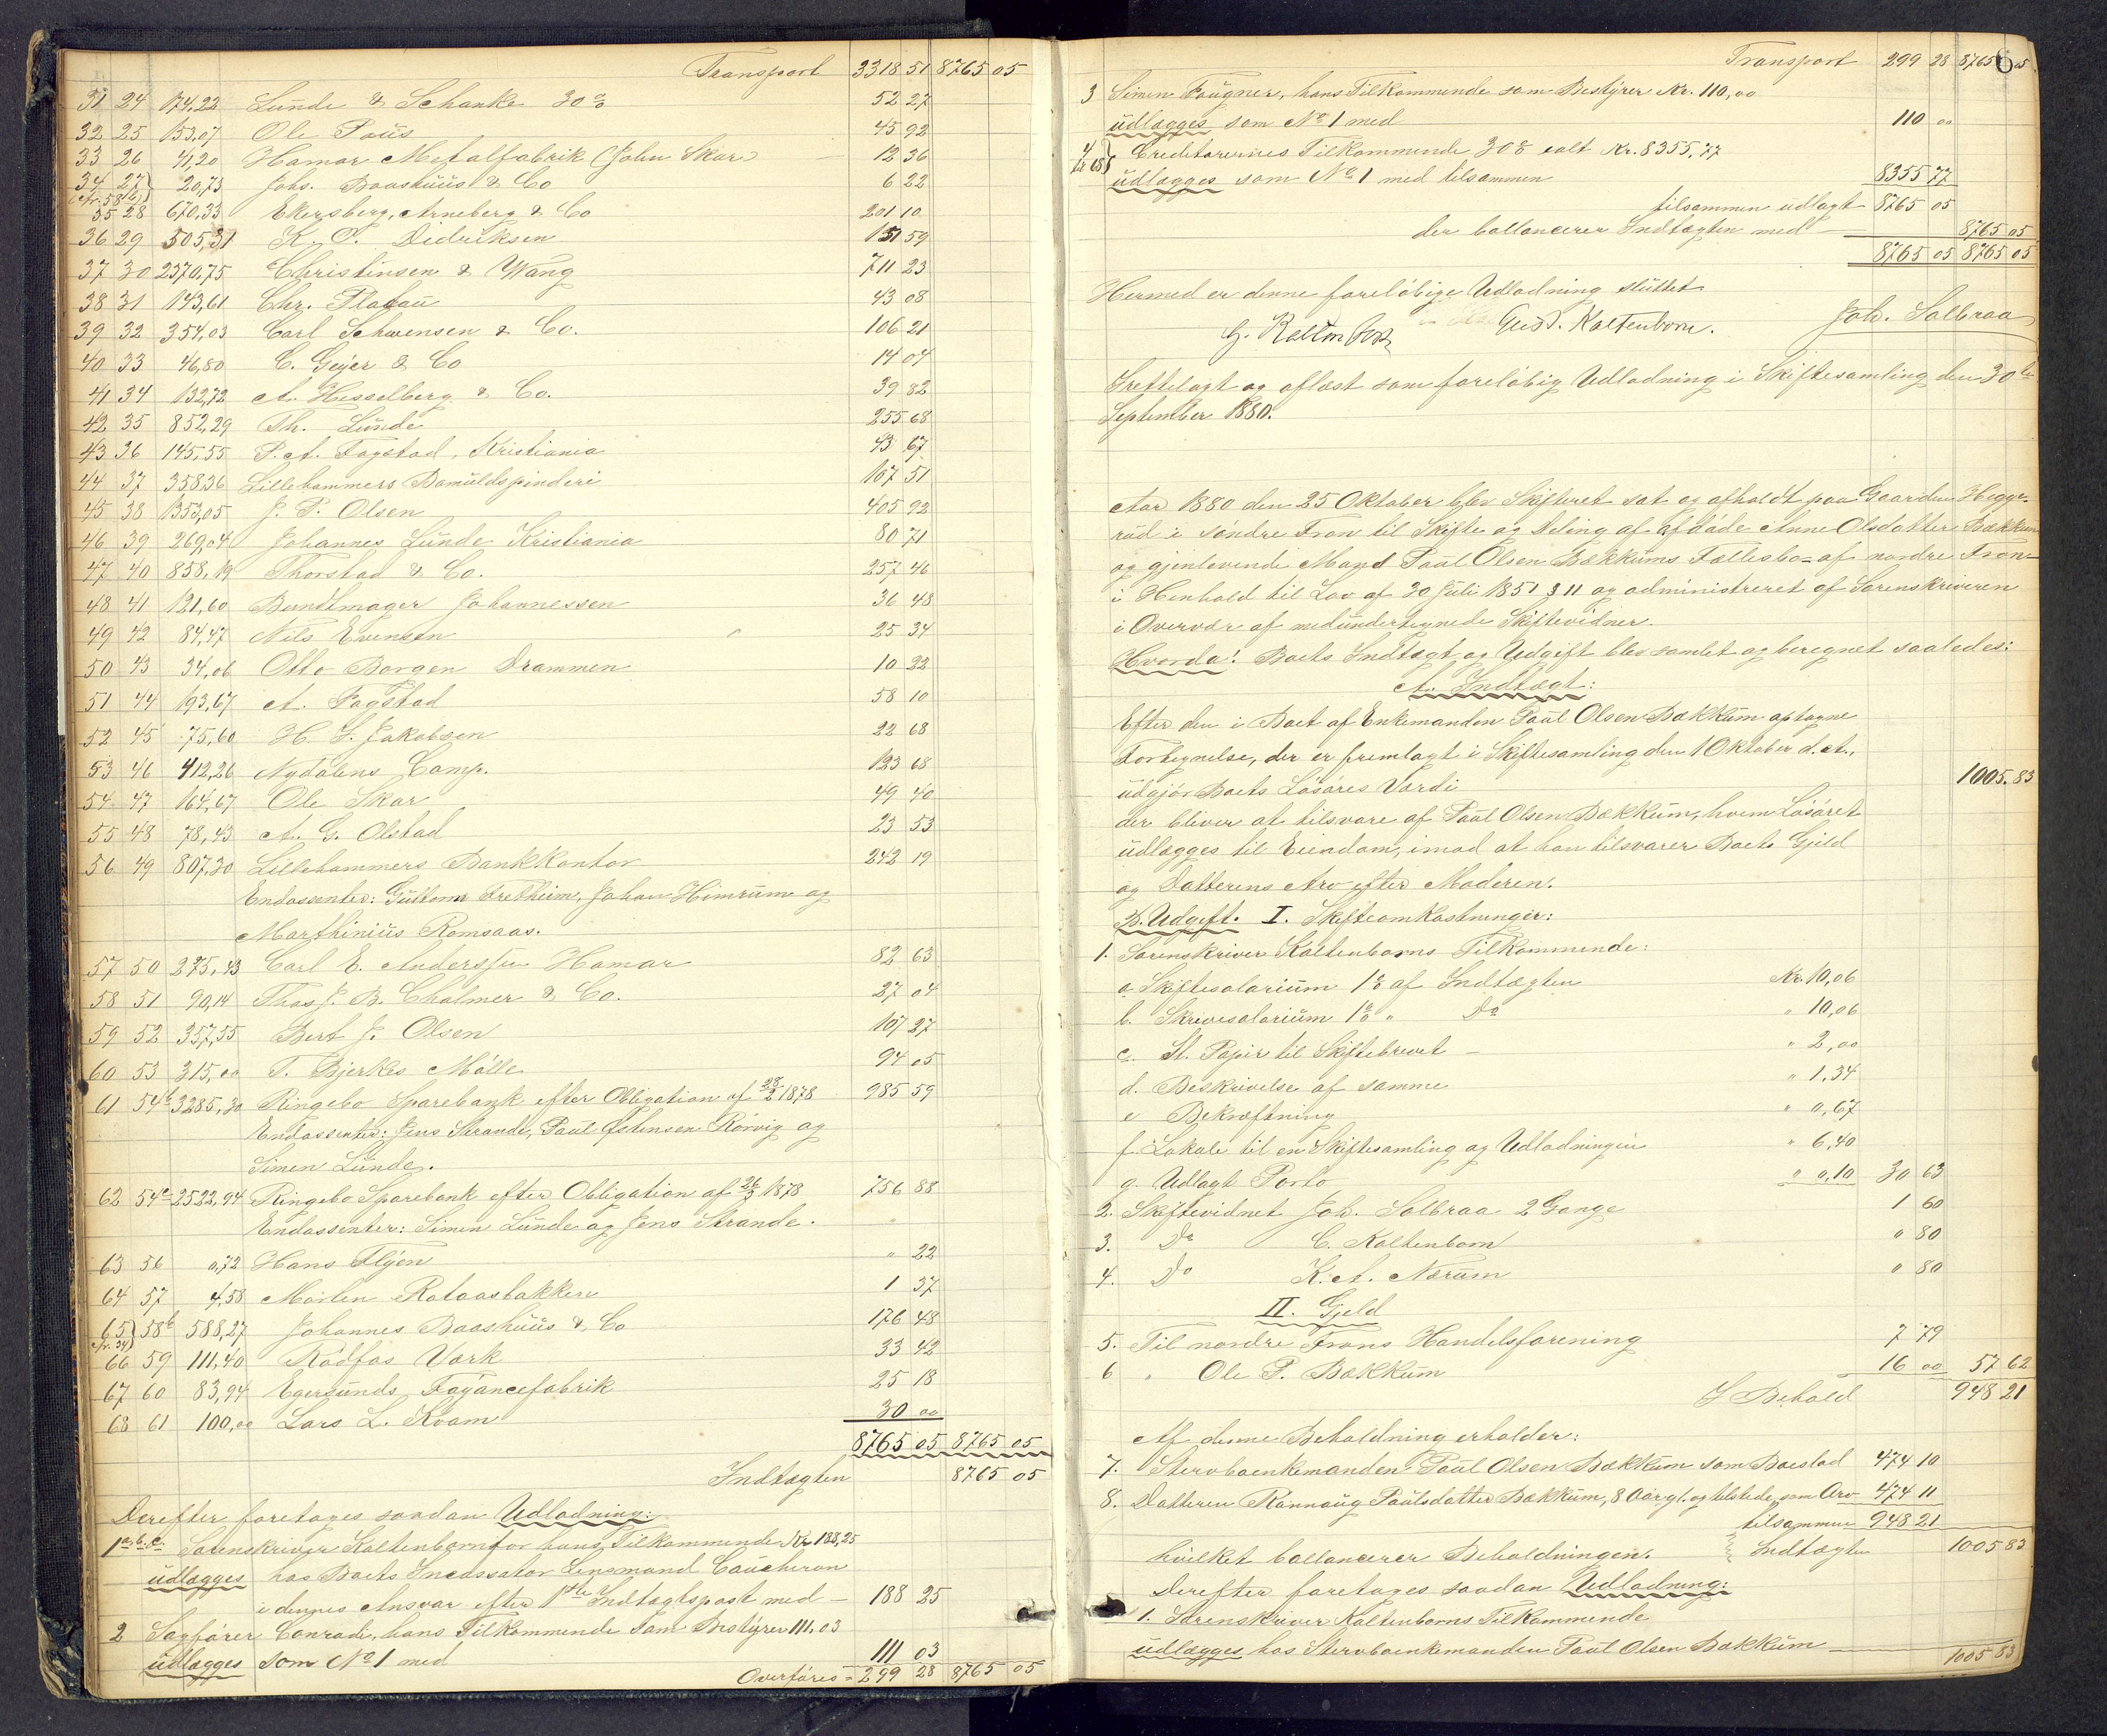 Transport 3318 51 8765 05
31 24 174,22 Lunde & Schanke 30% 52 27
32 25 153,07 Ole Paus 45 92
33 26 41,20 Hamar Metalfabrik (John Skar) 12 36
34 27 20,75 Johs. Baashuus & Co 6 22
(Nr. 58b)
35 28 670,33 Ekersberg, Arneberg & Co 201 10
36 29 505,31 K. T. Didriksen 151 59
37 30 2370,75 Christensen & Wang 711 23
38 31 143,61 Chr. Platou 43 08
39 32 354,03 Carl Schwensen & Co. 106 21
40 33 46,80 C. Geijer & Co 14 04
41 34 132,72 A. Hesselberg & Co. 39 82
42 35 852,29 Th. Lunde 255 68
43 36 145,55 P. A. Fagstad, Kristiania 43 67
44 37 358,36 Lillehammers Bomuldspinderi 107 51
45 38 1353,05 J. P. Olsen 405 92
46 39 269,04 Johannes Lunde Kristiania 80 71
47 40 858,19 Thorstad & Co. 257 46
48 41 121,60 Bundtmager Johannessen 36 48
49 42 84,47 Nils Evensen 25 34
50 43 34,06 Otto Borgen Drammen 10 22
51 44 193,67 A. Fagstad 58 10
52 45 75,60 H. G. Jakobsen 22 68
53 46 412,26 Nydalens Comp. 123 68
54 47 164,67 Ole Skar 49 40
55 48 78,43 A. G. Olstad 23 53
56 49 807,30 Lillehammers Bankkontor 242 19
Endossenter: Guttorm Fretheim, Johan Himrum og
Marthinius Romsaas.
57 50 275,43 Carl E. Anderssen Hamar 82 63
58 51 90,14 Thos J. B. Chalmer & Co. 27 04
59 52 357,55 Bert J. Olsen 107 27
60 53 315,00 T. Bjerkes Mølle 94 05
61 54b 3285,30 Ringebo Sparebank efter Obligation af 28/2 1878 985 59
Endossenter: Jens Strande, Paul Østensen Rørvig og
Simen Lunde.
62 54c 2522,94 Ringebo Sparebank efter Obligation af 26/3 1878 756 88
Endossenter: Simen Lunde og Jens Strande.
63 56 0,72 Hans Flyen " 22
64 57 4,58 Morten Rolaasbakken 1 37
65 58b 588,27 Johannes Baashuus & Co 176 48
(Nr. 34)
66 59 111,40 Rødfos Værk 33 42
67 60 83,94 Egersunds Fayancefabrik 25 18
68 61 100,00 Lars L. Kvam 30 00
8765 05 8765 05
Indtægten 8765 05
Derefter foretages saadan Udlodning:
1 a.b.c. Sorenskriver Kaltenborn for hans Tilkommende Kr 188,25
udlægges hos Boets Incassator Lensmand Caucheron
i dennes Ansvar efter 1ste Indtægtspost med – 188 25
2 Sagfører Conradi, hans Tilkommende som Bestyrer 111,03
udlægges som No 1 med 111 03
Overføres = 299 28 8765 05
6
Transport 299 28 8765 05
3 Simen Fougner, hans Tilkommende som Bestyrer Kr. 110,00
udlægges som No 1 med 110 00
4 til 68 Creditorernes Tilkommende 30% ialt Kr. 8355,77
udlægges som No 1 med tilsammen 8355 77
tilsammen udlagt 8765 05
der ballancerer Indtægten med 8765 05
8765 05 8765 05
Hermed er denne foreløbige Udlodning sluttet
G. Kaltenborn Gust. Kaltenborn. Joh. Solbraa
Fremlagt og oplæst som foreløbig Udlodning i Skiftesamling den 30te
September 1880.
Aar 1880 den 25 Oktober blev Skifteret sat og afholdt paa Gaarden Hegge-
rud i søndre Fron til Skifte og Deling af afdøde Anne Olsdatter Bækkum
og gjenlevende Mand Paul Olsen Bækkums Fællesbo af nordre Fron
i Henhold til Lov af 30 Juli 1851 § 11 og administreret af Sorenskriveren
i Overvær af medundertegnede Skiftevidner.
Hvorda: Boets Indtægt og Udgift blev samlet og beregnet saaledes:
A. Indtægt:
Efter den i Boet af Enkemanden Paul Olsen Bækkum optagne
Fortegnelse, der er fremlagt i Skiftesamling den 1 Oktober d. A.,
udgjør Boets Løsøres Værdi 1005.83
der bliver at tilsvare af Paul Olsen Bækkum, hvem Løsøret
udlægges til Eiendom, imod at han tilsvarer Boets Gjeld
og Datterens Arv efter Moderen.
B. Udgift. I. Skifteomkostninger:
1. Sorenskriver Kaltenborns Tilkommende:
a. Skiftesalarium 1% af Indtægten Kr. 10,06
b. Skrivesalarium 1% " Do " 10,06
c. St. Papir til Skiftebrevet – " 2,00
d. Beskrivelse af samme " 1,34
e Bekræftning " 0,67
f. Lokale til en Skiftesamling og Udlodningen " 6,40
g. Udlagt Porto " 0,10 30 63
2. Skiftevidnet Joh. Solbraa 2 Gange 1 60
3. Do C. Kaltenborn " 80
4. Do K. A. Nærum " 80
II. Gjeld
5. Til nordre Frons Handelsforening 7 79
6 " Ole P. Bækkum 16 00 57 62
I Behold 948 21
Af denne Beholdning erholder:
7. Stervboenkemanden Paul Olsen Bækkum som Boeslod 474 10
8. Datteren Rannaug Paulsdatter Bækkum, 8 Aar gl. og tilstede, som Arv 474 11
tilsammen 948 21
hvilket ballancerer Beholdningen. Indtægten 1005 83
Derefter foretages saadan Udlodning:
1. Sorenskriver Kaltenborns Tilkommende
udlægges hos Stervboenkemanden Paul Olsen Bækkum
1005 83